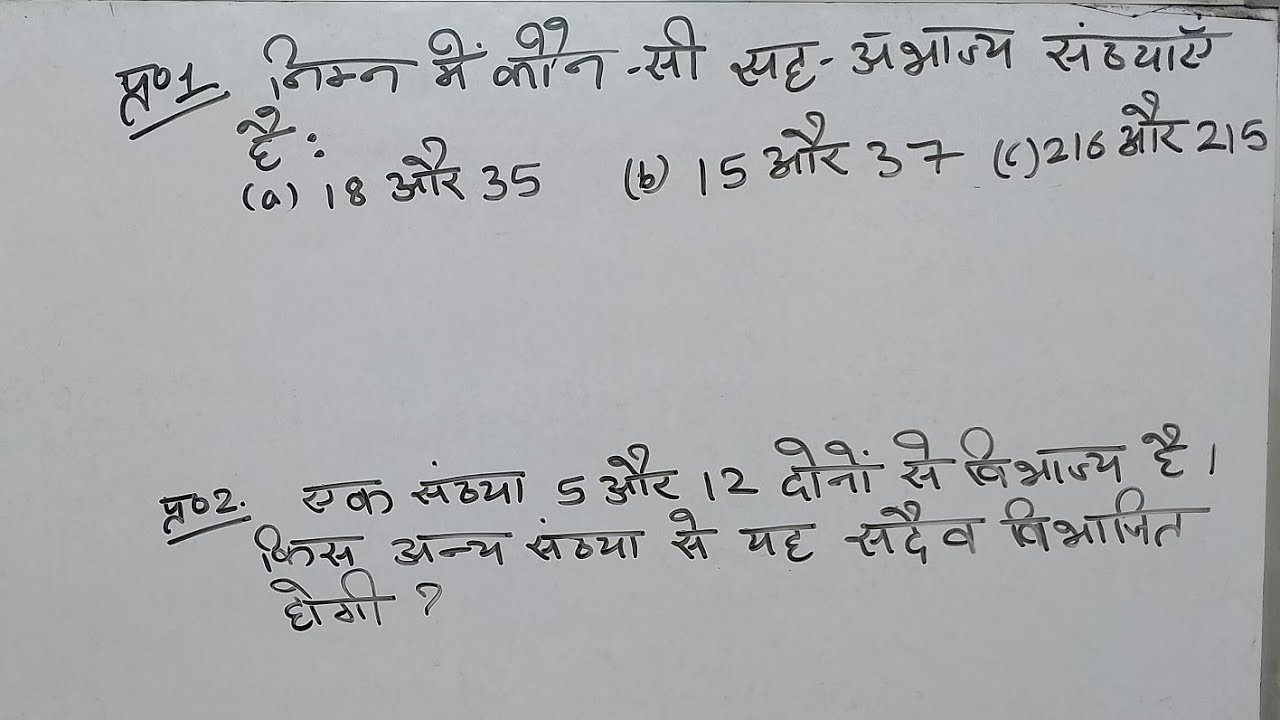 प्र०1. निम्न में कौन-सी सह-अभाज्य संख्याएँ
है :
(a) 18 और 35 (b) 15 और 37 (c) 216 और 215
प्र०2. एक संख्या 5 और 12 दोनों से विभाज्य है।
किस अन्य संख्या से यह सदैव विभाजित
होगी ?